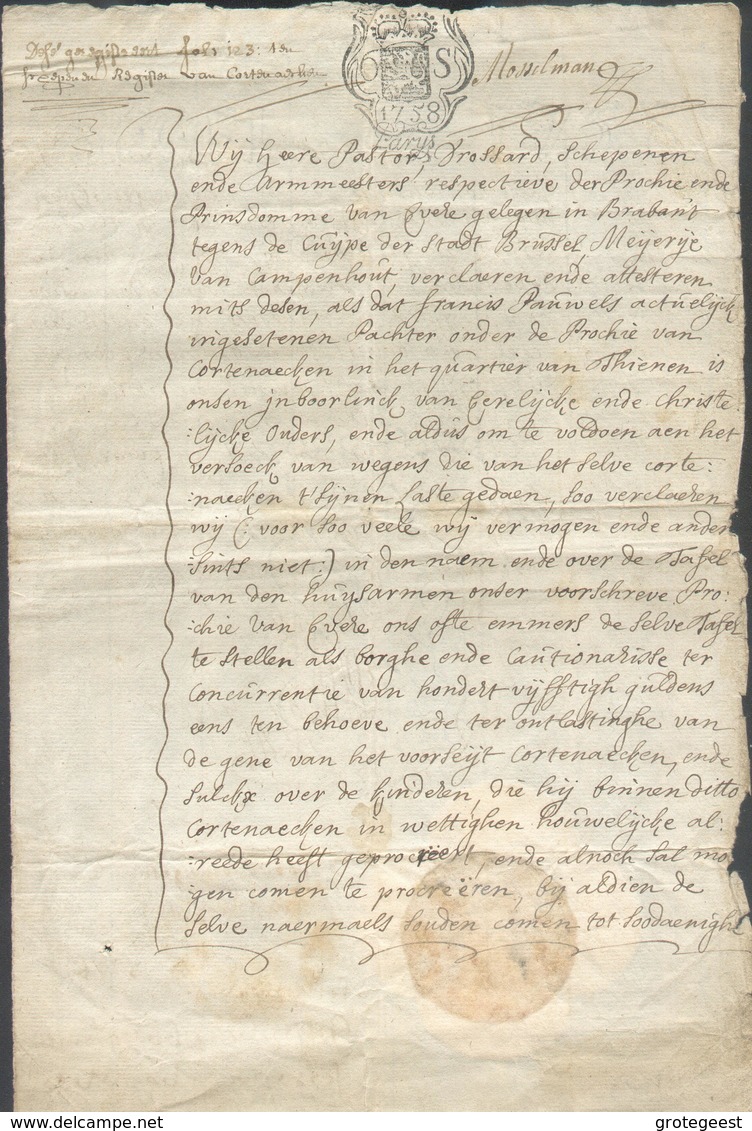 Dese geregistreert folio 123: ten
scepenen Register van Cortenaecken
6 S
1758
Mosselman
Wij heere Pastor, Drossard, Schepenen
ende Armmeesters respective der Prochie ende
Prinsdomme van Evere gelegen in Brabant
tegens de Cuype der stadt Brussel, Meijerije
van Campenhout, verclaeren ende attesteren
mits desen, als dat francis Pauwels actuelijck
ingesetenen Pachter onder de Prochie van
Cortenaecken in het quartier van Thienen is
onsen jnboorlinck van Eerelijcke ende Christe:
:lijcke Ouders, ende aldus om te voldoen aen het
versoeck van wegens die van het selve Corte:
:naecken t'sijnen laste gedaen, soo verclaeren
wij (: voor soo veele wij vermogen ende ander
:sints niet:) in den naem ende over de Tafel
van den huysarmen onser voorschreve Pro:
:chie van Evere ons ofte emmers de selve Tafel
te stellen als borghe ende Cautionarisse ter
Concurrentie van hondert vijfftigh guldens
eens ten behoeve ende ter ontlastinghe van
de gene van het voorseijt Cortenaecken, ende
sulckx over de kinderen, die hij binnen ditto
Cortenaecken in wettighen houwelijcke al:
:reede heeft geprocreëert, ende alnoch sal mo:
gen comen te procreëren, bij aldien de
selve naermaels souden comen tot soodaenighe
grotegeest